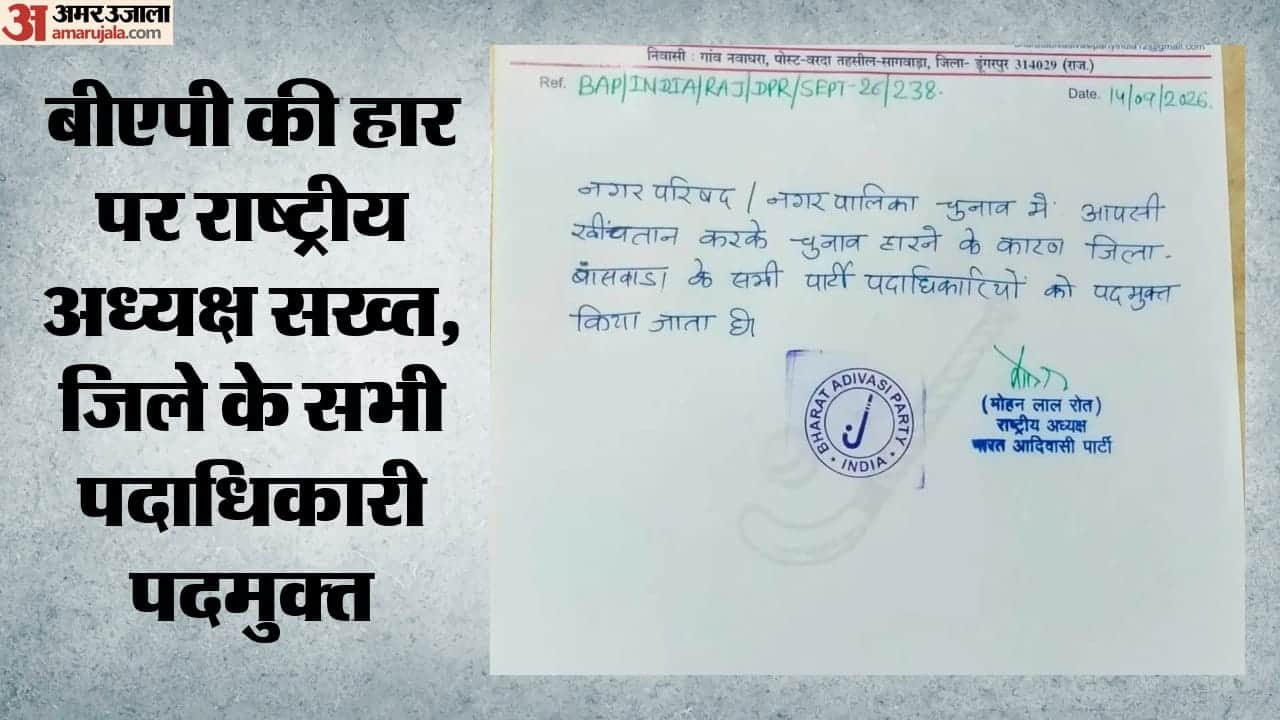 अमर उजाला
amarujala.com
बीएपी की हार
पर राष्ट्रीय
अध्यक्ष सख्त,
जिले के सभी
पदाधिकारी
पदमुक्त
निवासी : गांव नवाघरा, पोस्ट-वरदा तहसील-सागवाड़ा, जिला- डूंगरपुर 314029 (राज.)
Ref. BAP/INDIA/RAJ/DPR/SEPT-26/238.
Date. 14/09/2026.
नगर परिषद / नगर पालिका चुनाव में आपसी
खींचतान करके चुनाव हारने के कारण जिला-
बांसवाडा के सभी पार्टी पदाधिकारियों को पदमुक्त
किया जाता है।
BHARAT ADIVASI PARTY
INDIA
(मोहन लाल रोत)
राष्ट्रीय अध्यक्ष
भारत आदिवासी पार्टी